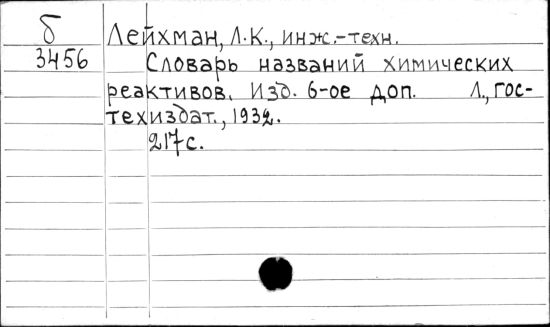 б
3456
Лейхман, Л.К., инж.-техн.
Словарь названий химических
реактивов. Изд. 6-ое доп. Л., Гос-
техиздат., 1932.
217 с.